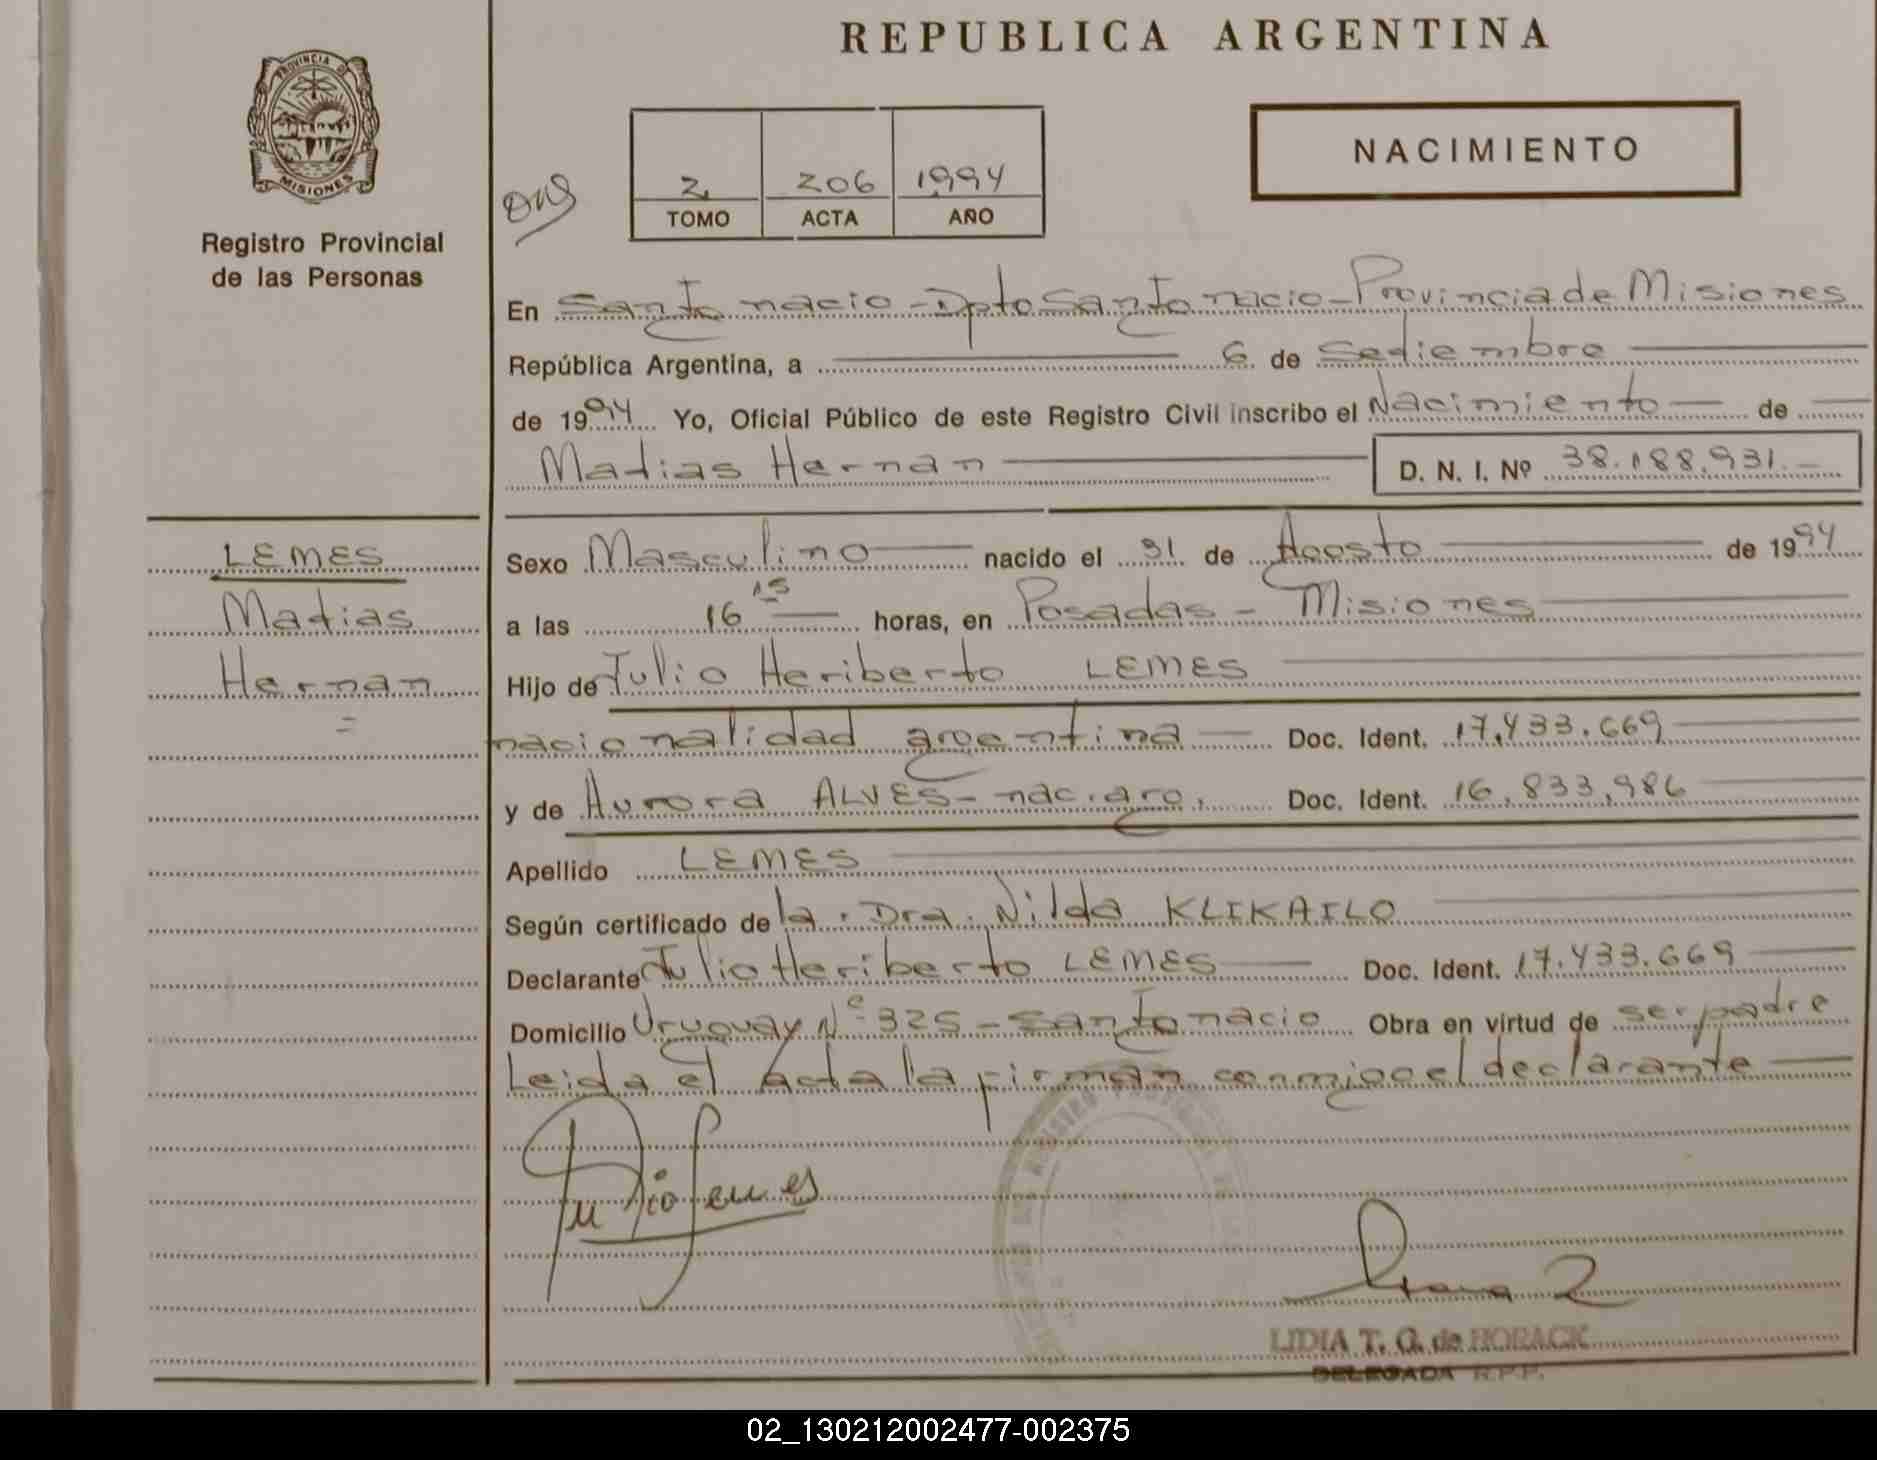 REPUBLICA ARGENTINA
PROVINCIA DE
MISIONES
Registro Provincial
de las Personas
2 206 1994
TOMO ACTA AÑO
NACIMIENTO
En San Ignacio - Dpto San Ignacio - Provincia de Misiones
República Argentina, a 6 de Setiembre
de 1994 Yo, Oficial Público de este Registro Civil inscribo el Nacimiento de
Matias Hernan D. N. I. Nº 38.188.931.-
LEMES
Matias
Hernan
=
Sexo Masculino nacido el 31 de Agosto de 1994
a las 16 15 horas, en Posadas - Misiones
Hijo de Julio Heriberto LEMES
nacionalidad argentina Doc. Ident. 17.433.669
y de Aurora ALVES - nac. arg. Doc. Ident. 16.833.986
Apellido LEMES
Según certificado de la. Dra. Nilda KLIKAILO
Declarante Julio Heriberto LEMES Doc. Ident. 17.433.669
Domicilio Uruguay Nº 325 - San Ignacio Obra en virtud de ser padre
Leida el acta la firman conmigo el declarante
Julio Lemes
LIDIA T. G. de HORACK
DELEGADA R.P.P.
02_130212002477-002375